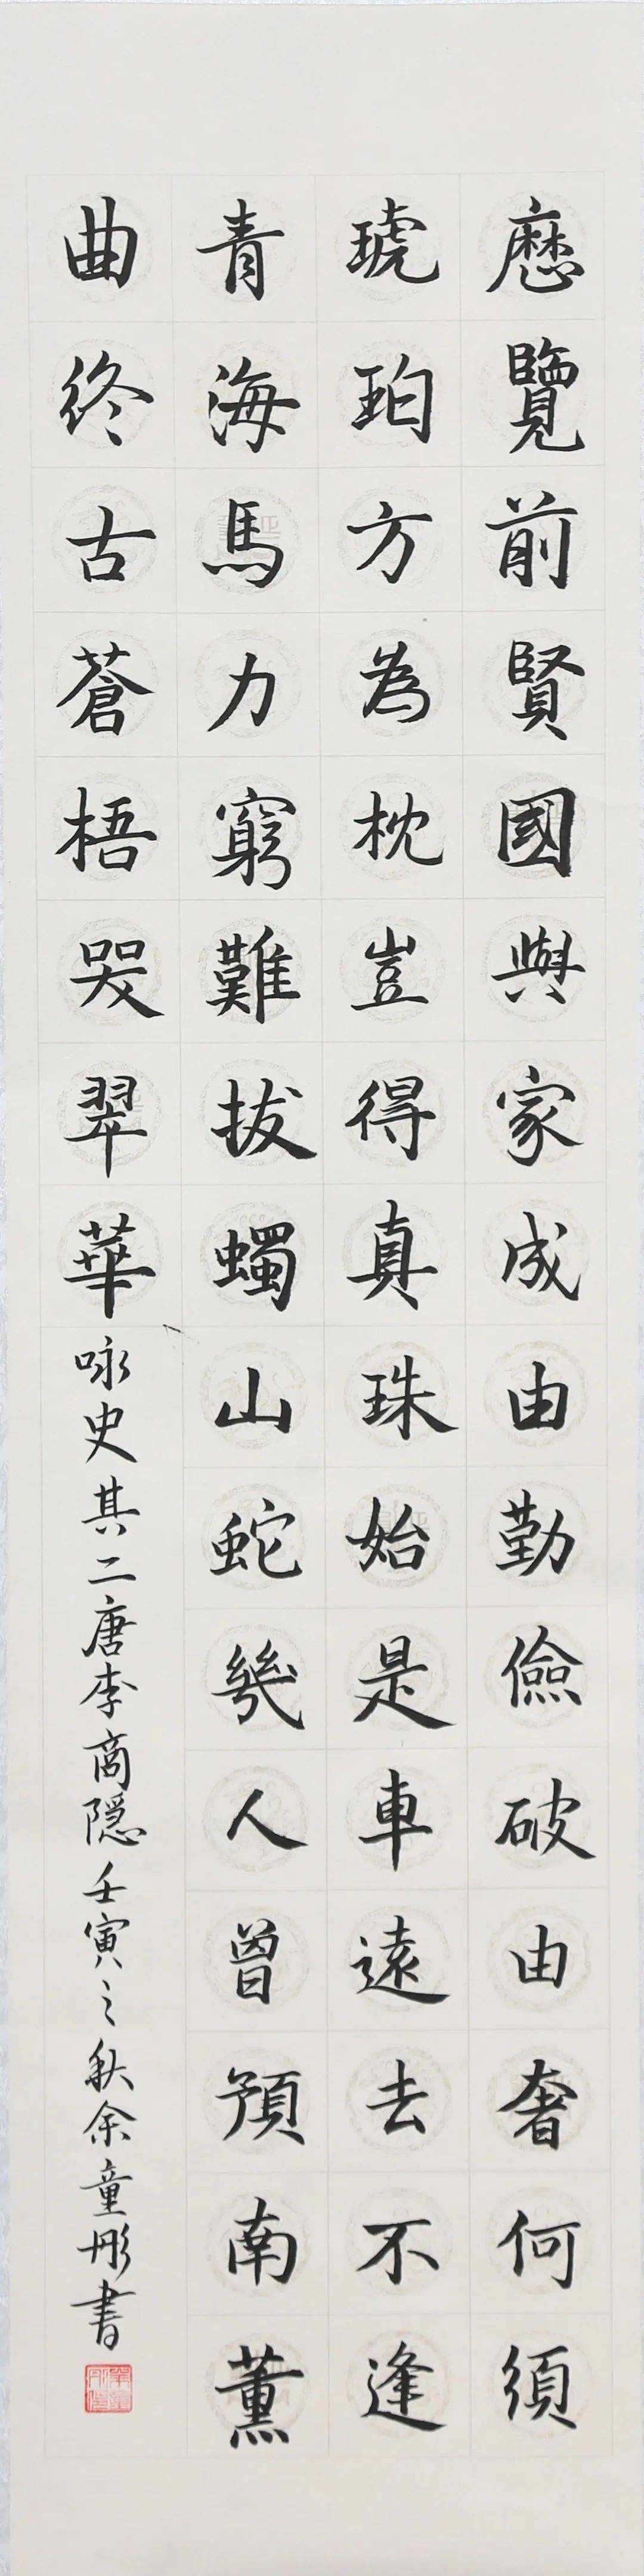 歷覽前賢國與家成由勤儉破由奢何須
琥珀方為枕豈得真珠始是車遠去不逢
青海馬力窮難拔蠋山蛇幾人曾預南薰
曲終古蒼梧哭翠華咏史其二唐李商隱壬寅之秋余童彤書